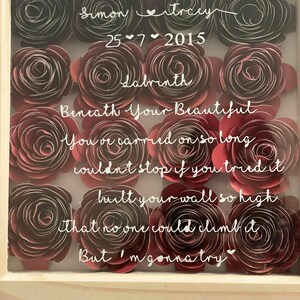 Simon ❤ Tracy
25 ❤ 7 ❤ 2015
Labrinth
Beneath Your Beautiful
You've carried on so long
couldn't stop if you tried it
built your wall so high
That no one could climb it
But I'm gonna try ❤